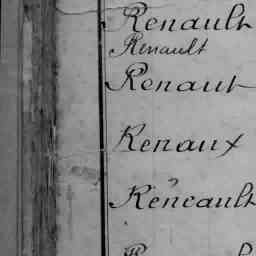 Renault
Renault
Renaut
Renaux
Reneault